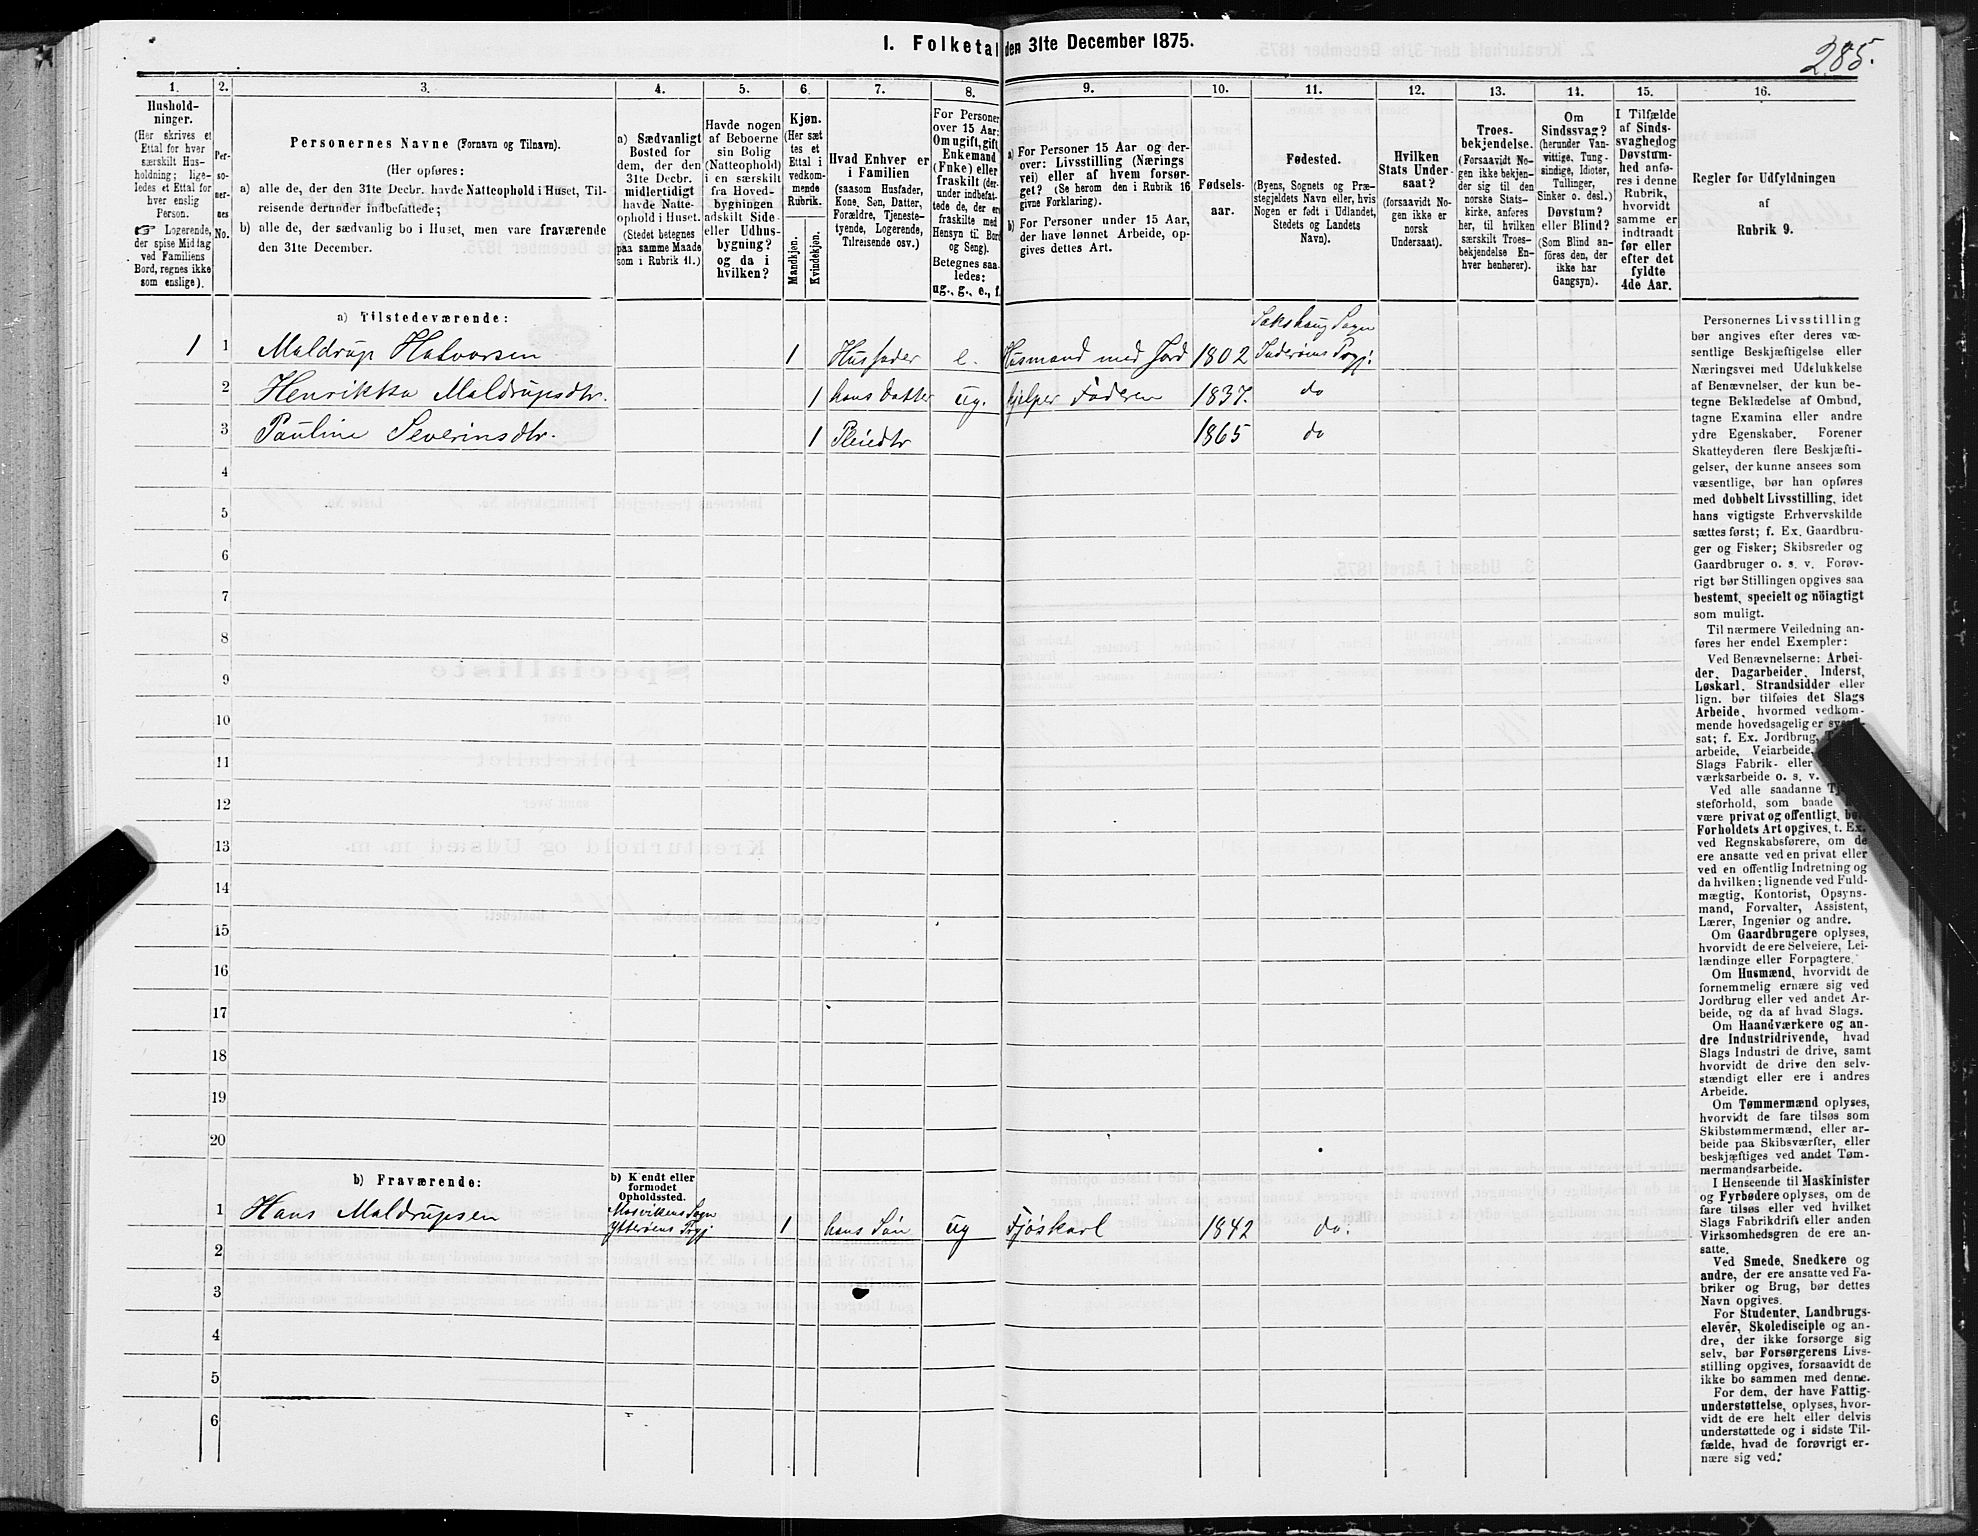 I. Folketal den 31te December 1875.
285.
1. 2. 3. 4. 5. 6. 7. 8. 9. 10. 11. 12. 13. 14. 15. 16.
Hushold-
ninger.
(Her skrives et
Ettal for hver
særskilt Hus-
holdning; lige-
ledes et Ettal for
hver enslig
Person.
☞ Logerende,
der spise Middag
ved Familiens
Bord, regnes ikke
som enslige).
Per-
so-
ner-
nes
No.
Personernes Navne (Fornavn og Tilnavn).
(Her opføres:
a) alle de, der den 31te Decbr. havde Natteophold i Huset, Til-
reisende derunder indbefattede;
b) alle de, der sædvanlig bo i Huset, men vare fraværende
den 31te December.
a) Sædvanligt
Bosted for
dem, der den
31te Decbr.
midlertidigt
havde Natte-
ophold i Huset.
(Stedet betegnes
paa samme Maade
som i Rubrik 11.)
Havde nogen
af Beboerne
sin Bolig
(Natteophold)
i en særskilt
fra Hoved-
bygningen
adskilt Side-
eller Udhus-
bygning?
og da i
hvilken?
Kjøn.
(Her sæt-
tes et
Ettal i
vedkom-
mende
Rubrik.
Mandkjøn.
Kvindekjøn.
Hvad Enhver er
i Familien
(saasom Husfader,
Kone, Søn, Datter,
Forældre, Tjeneste-
tyende, Logerende,
Tilreisende osv.)
For Personer
over 15 Aar:
Om ugift, gift,
Enkemand
(Enke) eller
fraskilt (der-
under indbefat-
tede de, der er
fraskilte med
Hensyn til Bord
og Seng).
Betegnes saa-
ledes:
ug., g., e., f.
a) For Personer 15 Aar og der-
over: Livsstilling (Nærings-
vei) eller af hvem forsør-
get? (Se herom den i Rubrik 16
givne Forklaring).
b) For Personer under 15 Aar,
der have lønnet Arbeide, op-
gives dettes Art.
Fødsels-
aar.
Fødested.
(Byens, Sognets og Præ-
stegjeldets Navn eller, hvis
Nogen er født i Udlandet,
Stedets og Landets
Navn).
Hvilken
Stats Under-
saat?
(forsaavidt No-
gen ikke er
norsk
Undersaat).
Troes-
bekjendelse.
(Forsaavidt No-
gen ikke bekjen-
der sig til den
norske Stats-
kirke, anføres
her, til hvilken
særskilt Troes-
bekjendelse En-
hver henhører).
Om
Sindssvag?
(herunder Van-
vittige, Tung-
sindige, Idioter,
Tullinger,
Sinker o. desl.)
Døvstum?
eller Blind?
(Som Blind an-
føres den, der
ikke har
Gangsyn).
I Tilfælde
af Sinds-
svaghed og
Døvstum-
hed anfø-
res i denne
Rubrik,
hvorvidt
samme er
indtraadt
før eller
efter det
fyldte
4de Aar.
Regler for Udfyldningen
af
Rubrik 9.
a) Tilstedeværende:
1 1 Maldrup Halvorsen 1 Husfader e. Husmand med Jord 1802 Sakshaug Sogn Inderøens Prgj.
2 Henrikka Maldrupsdtr. 1 hans Datter ug. hjelper Faderen 1837. do
3 Pauline Severinsdtr. 1 Pleiedtr 1865 do
4
5
6
7
8
9
10
11
12
13
14
15
16
17
18
19
20
b) Fraværende:
b) Kjendt eller
formodet
Opholdssted.
1 Hans Maldrupsen Mosvikens Sogn Ytterøens Prgj 1 hans Søn ug Fjøskarl 1842 do.
2
3
4
5
6
Personernes Livsstilling
bør angives efter deres væ-
sentlige Beskjæftigelse eller
Næringsvei med Udelukkelse
af Benævnelser, der kun be-
tegne Beklædelse af Ombud,
tagne Examina eller andre
ydre Egenskaber. Forener
Skatteyderen flere Beskjæfti-
gelser, der kunne ansees som
væsentlige, bør han opføres
med dobbelt Livsstilling, idet
hans vigtigste Erhvervskilde
sættes først; f. Ex. Gaardbru-
ger og Fisker; Skibsreder og
Gaardbruger o. s. v. Forøv-
rigt bør Stillingen opgives saa
bestemt, specielt og nöiagtigt
som muligt.
Til nærmere Veiledning an-
føres her endel Exempler:
Ved Benævnelserne: Arbei-
der, Dagarbeider, Inderst,
Løskarl, Strandsidder eller
lign. bør tilføies det Slags
Arbeide, hvormed vedkom-
mende hovedsagelig er syssel-
sat; f. Ex. Jordbrug,
arbeide, Veiarbeide,
Slags Fabrik- eller
værksarbeide o. s. v.
Ved alle saadanne Tje-
steforhold, som baade
være privat og offentligt, bør
Forholdets Art opgives, t. Ex.
ved Regnskabsførere, om de
ere ansatte ved en privat eller
ved en offentlig Indretning og
da hvilken; lignende ved Fuld-
mægtig, Kontorist, Opsyns-
mand, Forvalter, Assistent,
Lærer, Ingeniør og andre.
Om Gaardbrugere oplyses,
hvorvidt de ere Selveiere, Lei-
lændinge eller Forpagtere.
Om Husmænd, hvorvidt de
fornemmelig ernære sig ved
Jordbrug eller ved andet Ar-
beide, og da af hvad Slags.
Om Haandværkere og an-
dre Industridrivende, hvad
Slags Industri de drive, samt
hvorvidt de drive den selv-
stændigt eller ere i andres
Arbeide.
Om Tømmermænd oplyses,
hvorvidt de fare tilsøs som
Skibstømmermænd, eller ar-
beide paa Skibsværfter, eller
beskjæftiges ved andet Tøm-
mermandsarbeide.
I Henseende til Maskinister
og Fyrbødere oplyses, om de
fare tilsøs eller ved hvilket
Slags Fabrikdrift eller anden
Virksomhedsgren de ere an-
satte.
Ved Smede, Snedkere og
andre, der ere ansatte ved Fa-
briker og Brug, bør dettes
Navn opgives.
For Studenter, Landbrugs-
elever, Skoledisciple og an-
dre, der ikke forsørge sig
selv, bør Forsørgerens Livs-
stilling opgives, forsaavidt de
ikke bo sammen med denne.
For dem, der have Fattig-
understøttelse, oplyses, hvor-
vidt de ere helt eller delvis
understøttede og i sidste Til-
fælde, hvad de forøvrigt er-
nære sig ved.